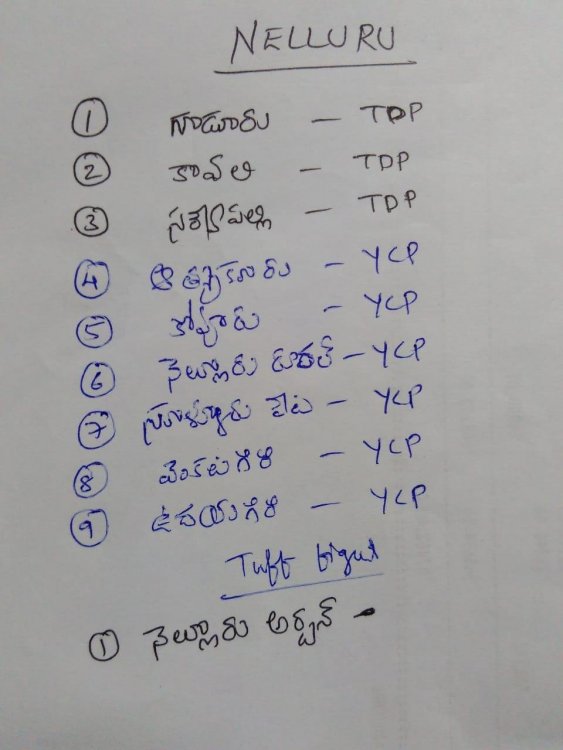 NELLURU
① గూడూరు - TDP
② కావలి - TDP
③ సర్వేపల్లి - TDP
④ ఆత్మకూరు - YCP
⑤ కోవూరు - YCP
⑥ నెల్లూరు రూరల్ - YCP
⑦ సూళ్ళూరు పేట - YCP
⑧ వెంకటగిరి - YCP
⑨ ఉదయగిరి - YCP
Tuff
① నెల్లూరు అర్బన్ -